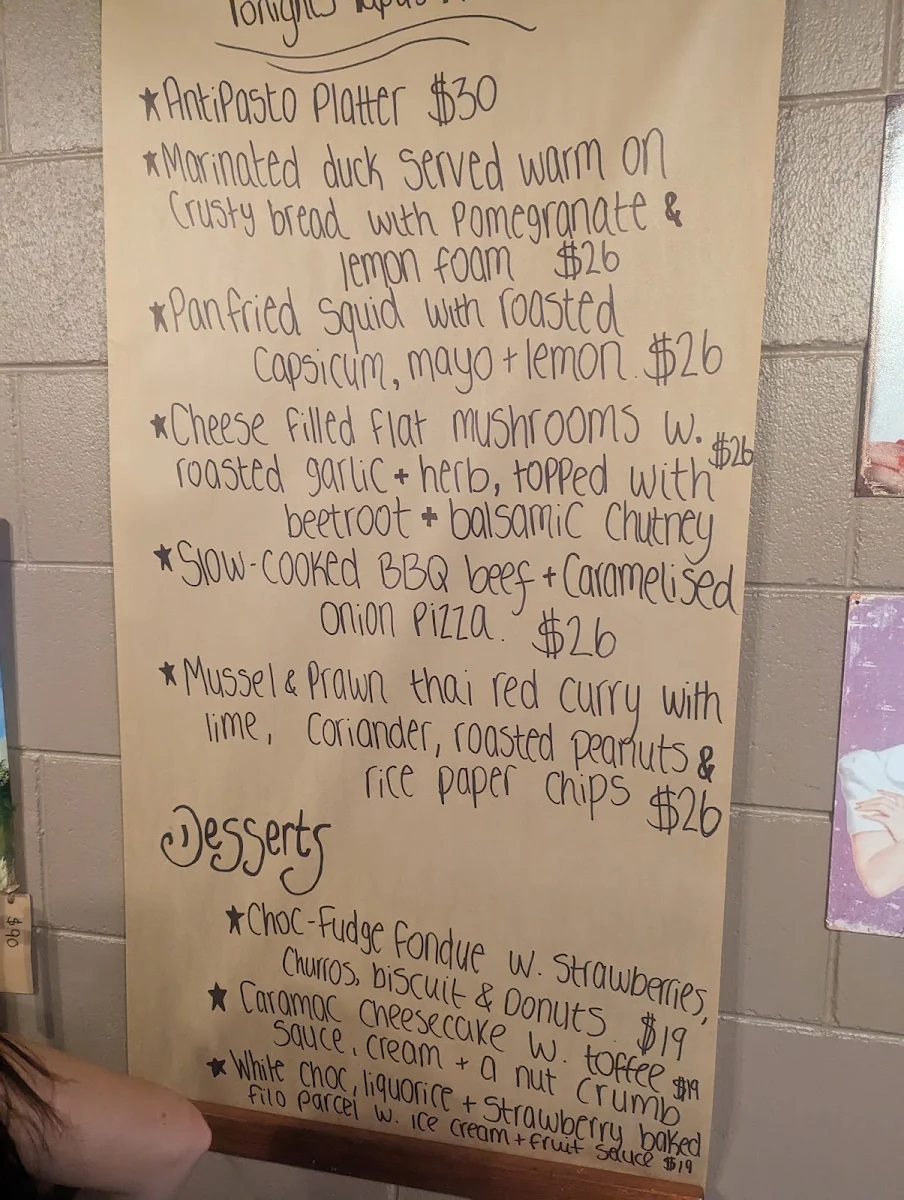 Tonight's Tapas
★AntiPasto Platter $30
★Marinated duck served warm on
Crusty bread with Pomegranate &
lemon foam $26
★Panfried Squid with roasted
Capsicum, mayo + lemon. $26
★Cheese filled flat mushrooms w. $26
roasted garlic + herb, topped with
beetroot + balsamic Chutney
★Slow-cooked BBQ beef + Caramelised
onion Pizza. $26
★Mussel & Prawn thai red curry with
lime, Coriander, roasted peanuts &
rice paper chips $26
Desserts
★Choc-Fudge fondue w. Strawberries,
Churros, biscuit & Donuts. $19
★Caramac cheesecake w. toffee
Sauce, cream + a nut crumb $19
★White choc, liquorice + Strawberry baked
filo parcel w. ice cream + fruit sauce $19
$90